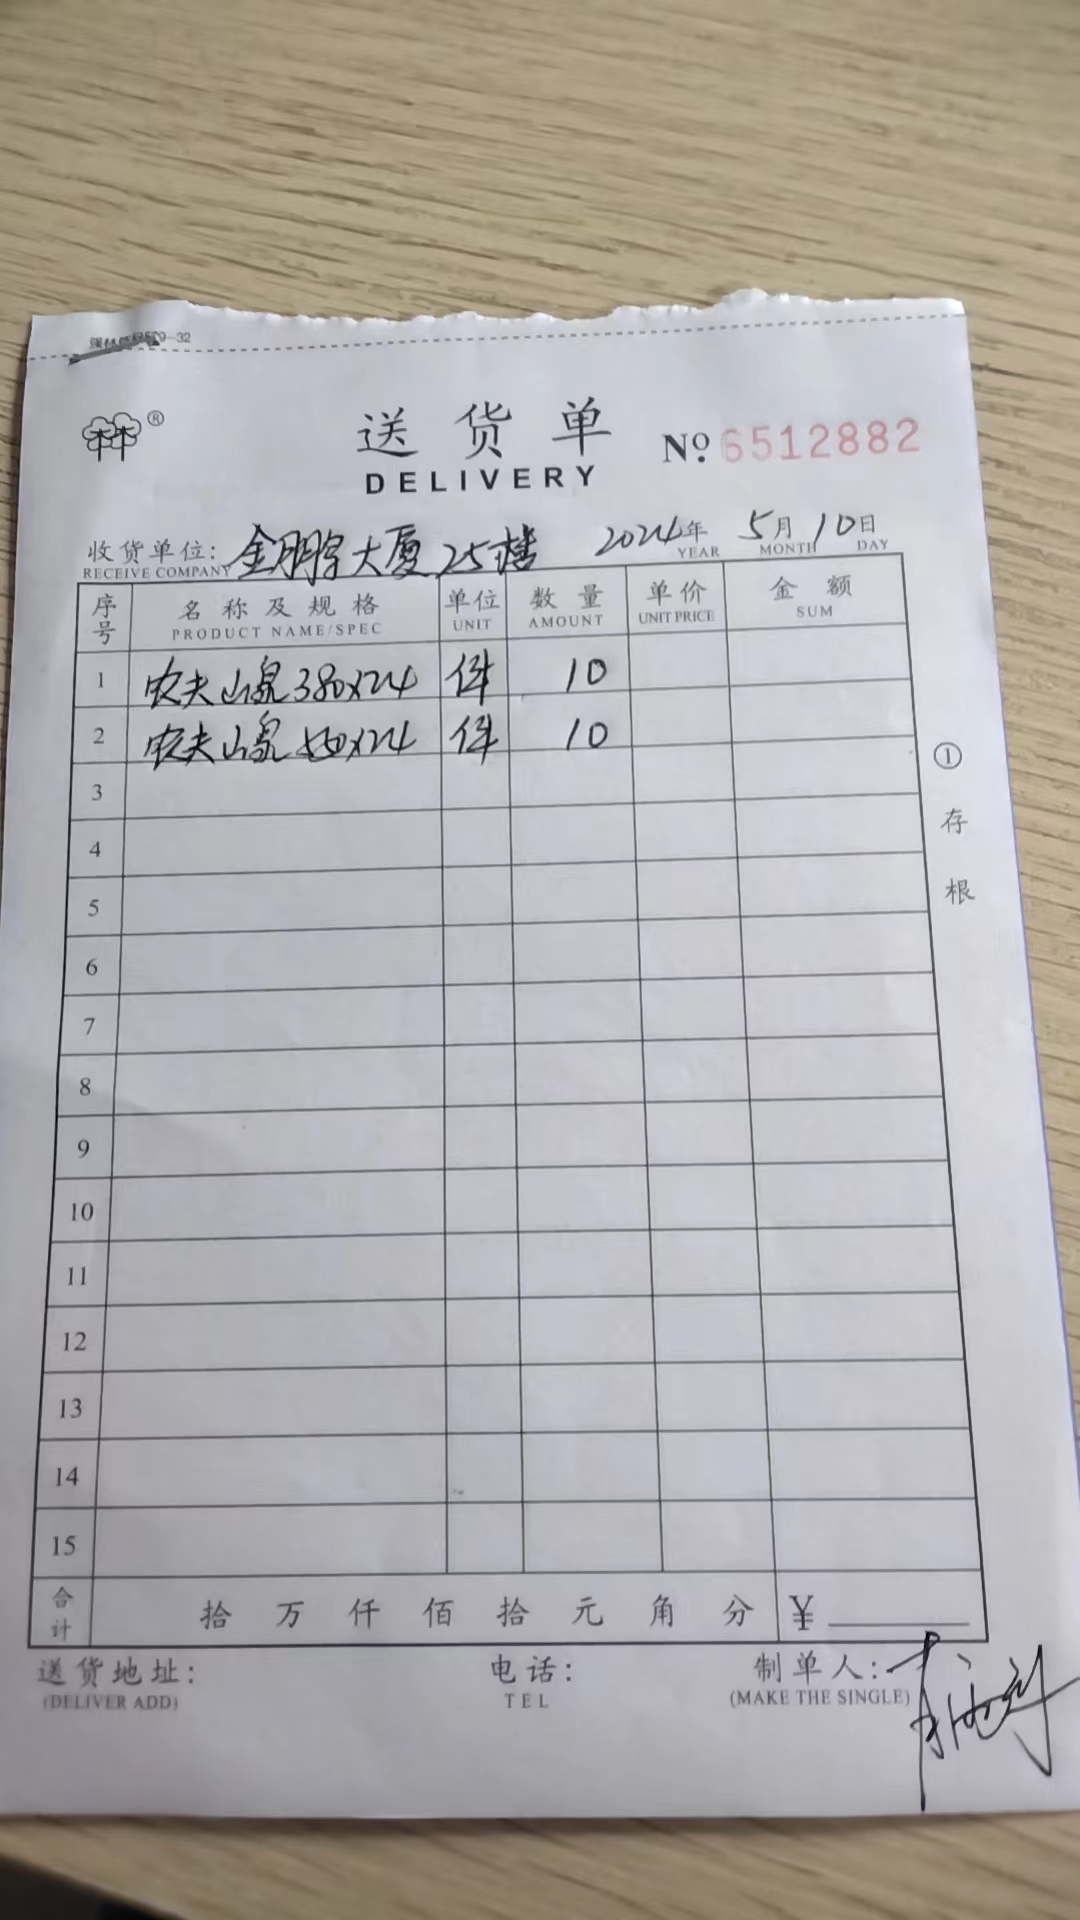 9-32
®
送货单
DELIVERY
№ 6512882
收货单位: 金鹏大厦25楼 2024年 5月 10日
RECEIVE COMPANY YEAR MONTH DAY
序号 名称及规格 单位 数量 单价 金额
PRODUCT NAME/SPEC UNIT AMOUNT UNIT PRICE SUM
1 农夫山泉380x24 件 10
2 农夫山泉550x24 件 10
3
4
5
6
7
8
9
10
11
12
13
14
15
①存根
合计 拾 万 仟 佰 拾 元 角 分 ¥
送货地址: 电话: 制单人:
(DELIVER ADD) TEL (MAKE THE SINGLE)